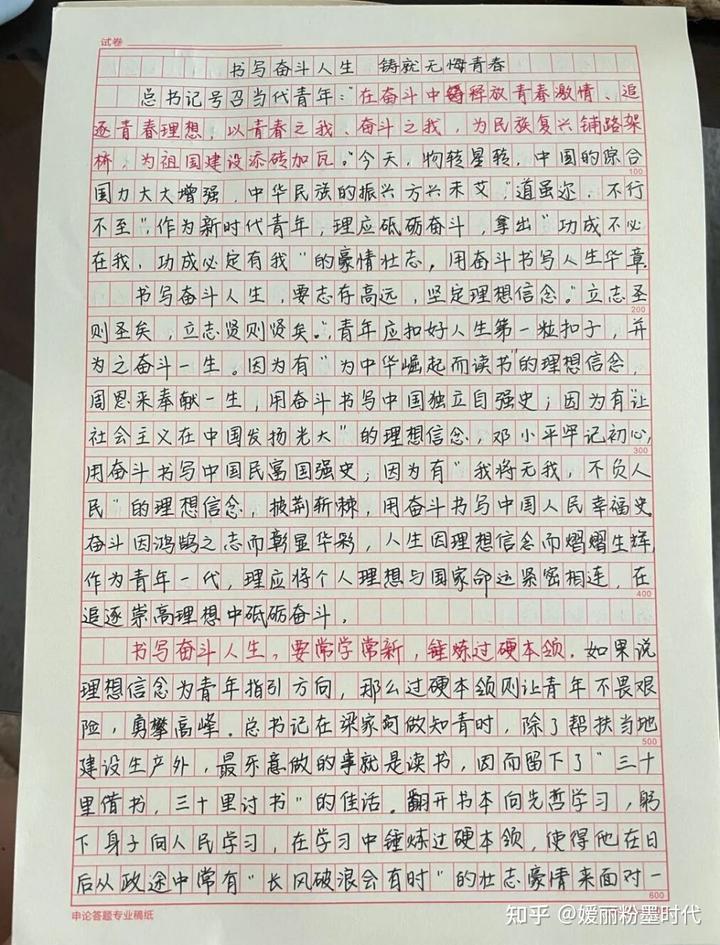 试卷
书写奋斗人生 铸就无悔青春
总书记号召当代青年：“在奋斗中释放青春激情、追
逐青春理想，以青春之我、奋斗之我，为民族复兴铺路架
桥，为祖国建设添砖加瓦。”今天，物转星转，中国的综合
100
国力大大增强，中华民族的振兴方兴未艾，“道虽迩，不行
不至”，作为新时代青年，理应砥砺奋斗，拿出“功成不必
在我，功成必定有我”的豪情壮志，用奋斗书写人生华章
书写奋斗人生，要志存高远，坚定理想信念。“立志圣
200
则圣矣，立志贤则贤矣。”，青年应扣好人生第一粒扣子，并
为之奋斗一生。因为有“为中华崛起而读书”的理想信念，
周恩来奉献一生，用奋斗书写中国独立自强史；因为有“让
社会主义在中国发扬光大”的理想信念，邓小平牢记初心，
300
用奋斗书写中国民富国强史；因为有“我将无我，不负人
民”的理想信念，披荆斩棘，用奋斗书写中国人民幸福史
奋斗因鸿鹄之志而彰显华彩，人生因理想信念而熠熠生辉，
作为青年一代，理应将个人理想与国家命运紧密相连，在
400
追逐崇高理想中砥砺奋斗，
书写奋斗人生，要常学常新，锤炼过硬本领，如果说
理想信念为青年指引方向，那么过硬本领则让青年不畏艰
险，勇攀高峰。总书记在梁家河做知青时，除了帮扶当地
500
建设生产外，最乐意做的事就是读书，因而留下了“三十
里借书，三十里讨书”的佳话。翻开书本向先哲学习，躬
下身子向人民学习，在学习中锤炼过硬本领，使得他在日
后从政途中常有“长风破浪会有时”的壮志豪情来面对一
600
申论答题专业稿纸
知乎 @媛丽粉墨时代